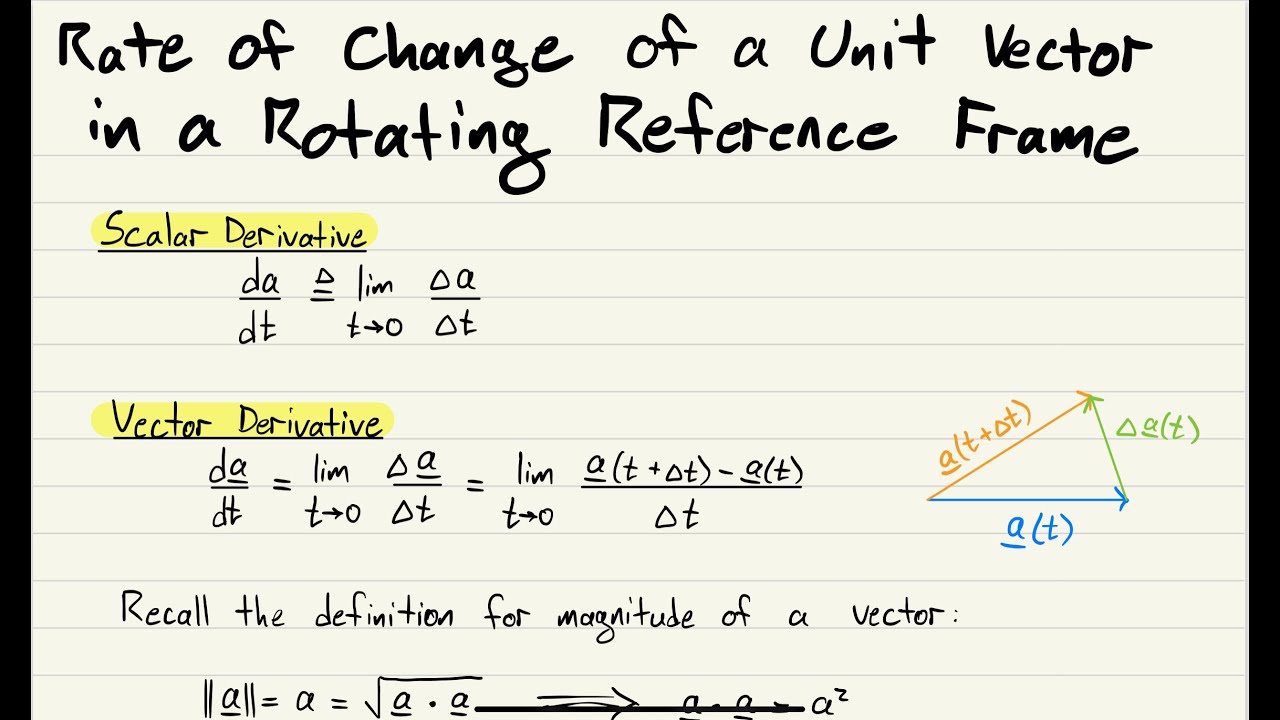 Rate of Change of a Unit Vector
in a Rotating Reference Frame
Scalar Derivative
da/dt ≜ lim t→0 Δa/Δt
Vector Derivative
da̲/dt = lim t→0 Δa̲/Δt = lim t→0 (a̲(t+Δt) - a̲(t))/Δt
a̲(t+Δt)
Δa̲(t)
a̲(t)
Recall the definition for magnitude of a vector:
||a̲|| = a = √(a̲ · a̲) ⟹ a̲ · a̲ = a²